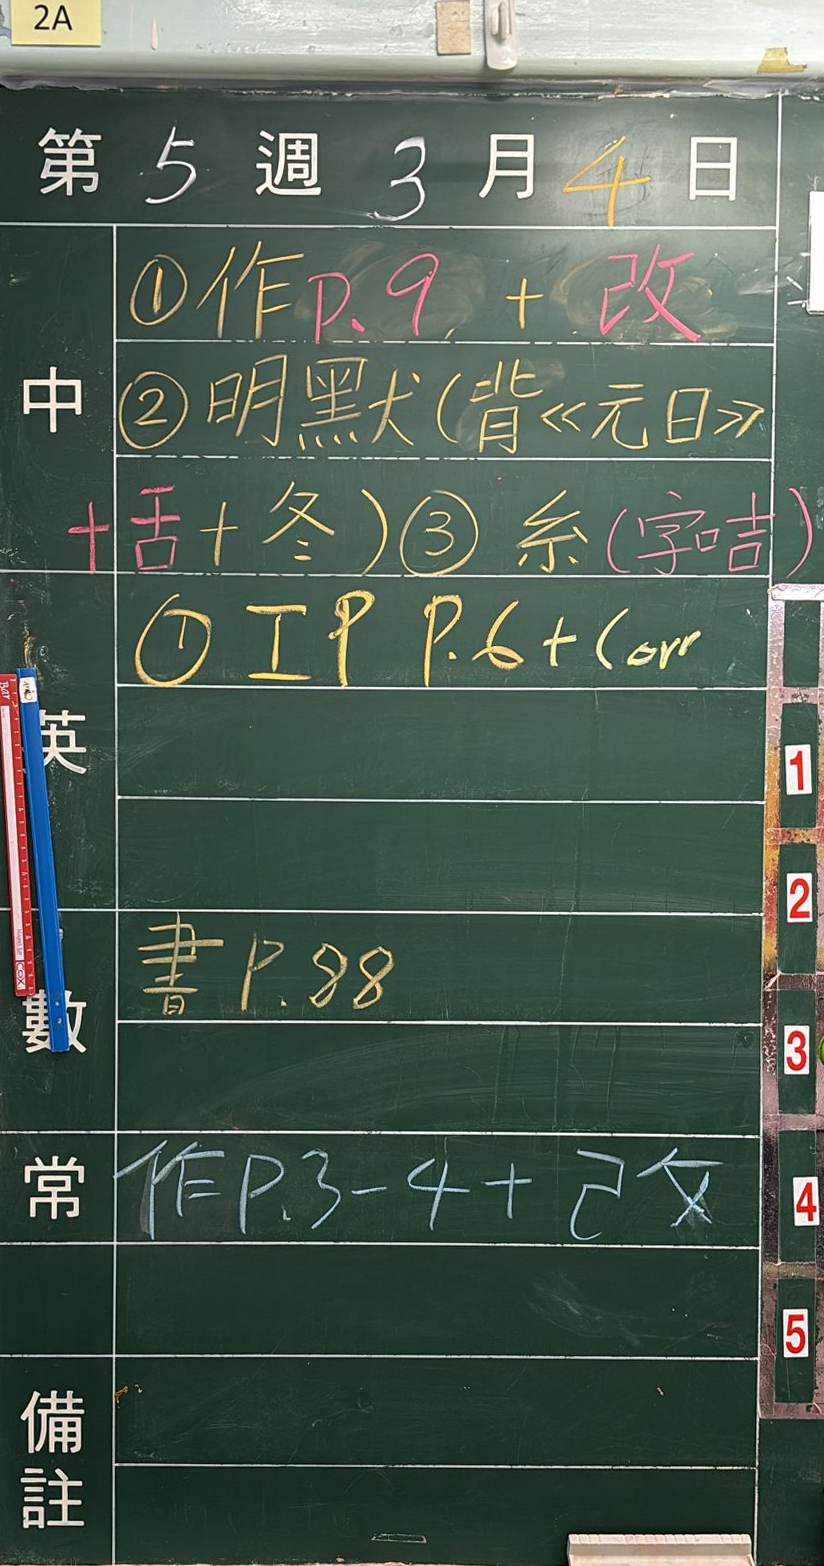 2A
第5週3月4日
中
①作P.9 + 改
②明默(背《元日》
+舌+冬)③糸(字咭)
英
① IP P.6 + Corr
數
書P.88
常
作P.3-4+改
備註
1
2
3
4
5